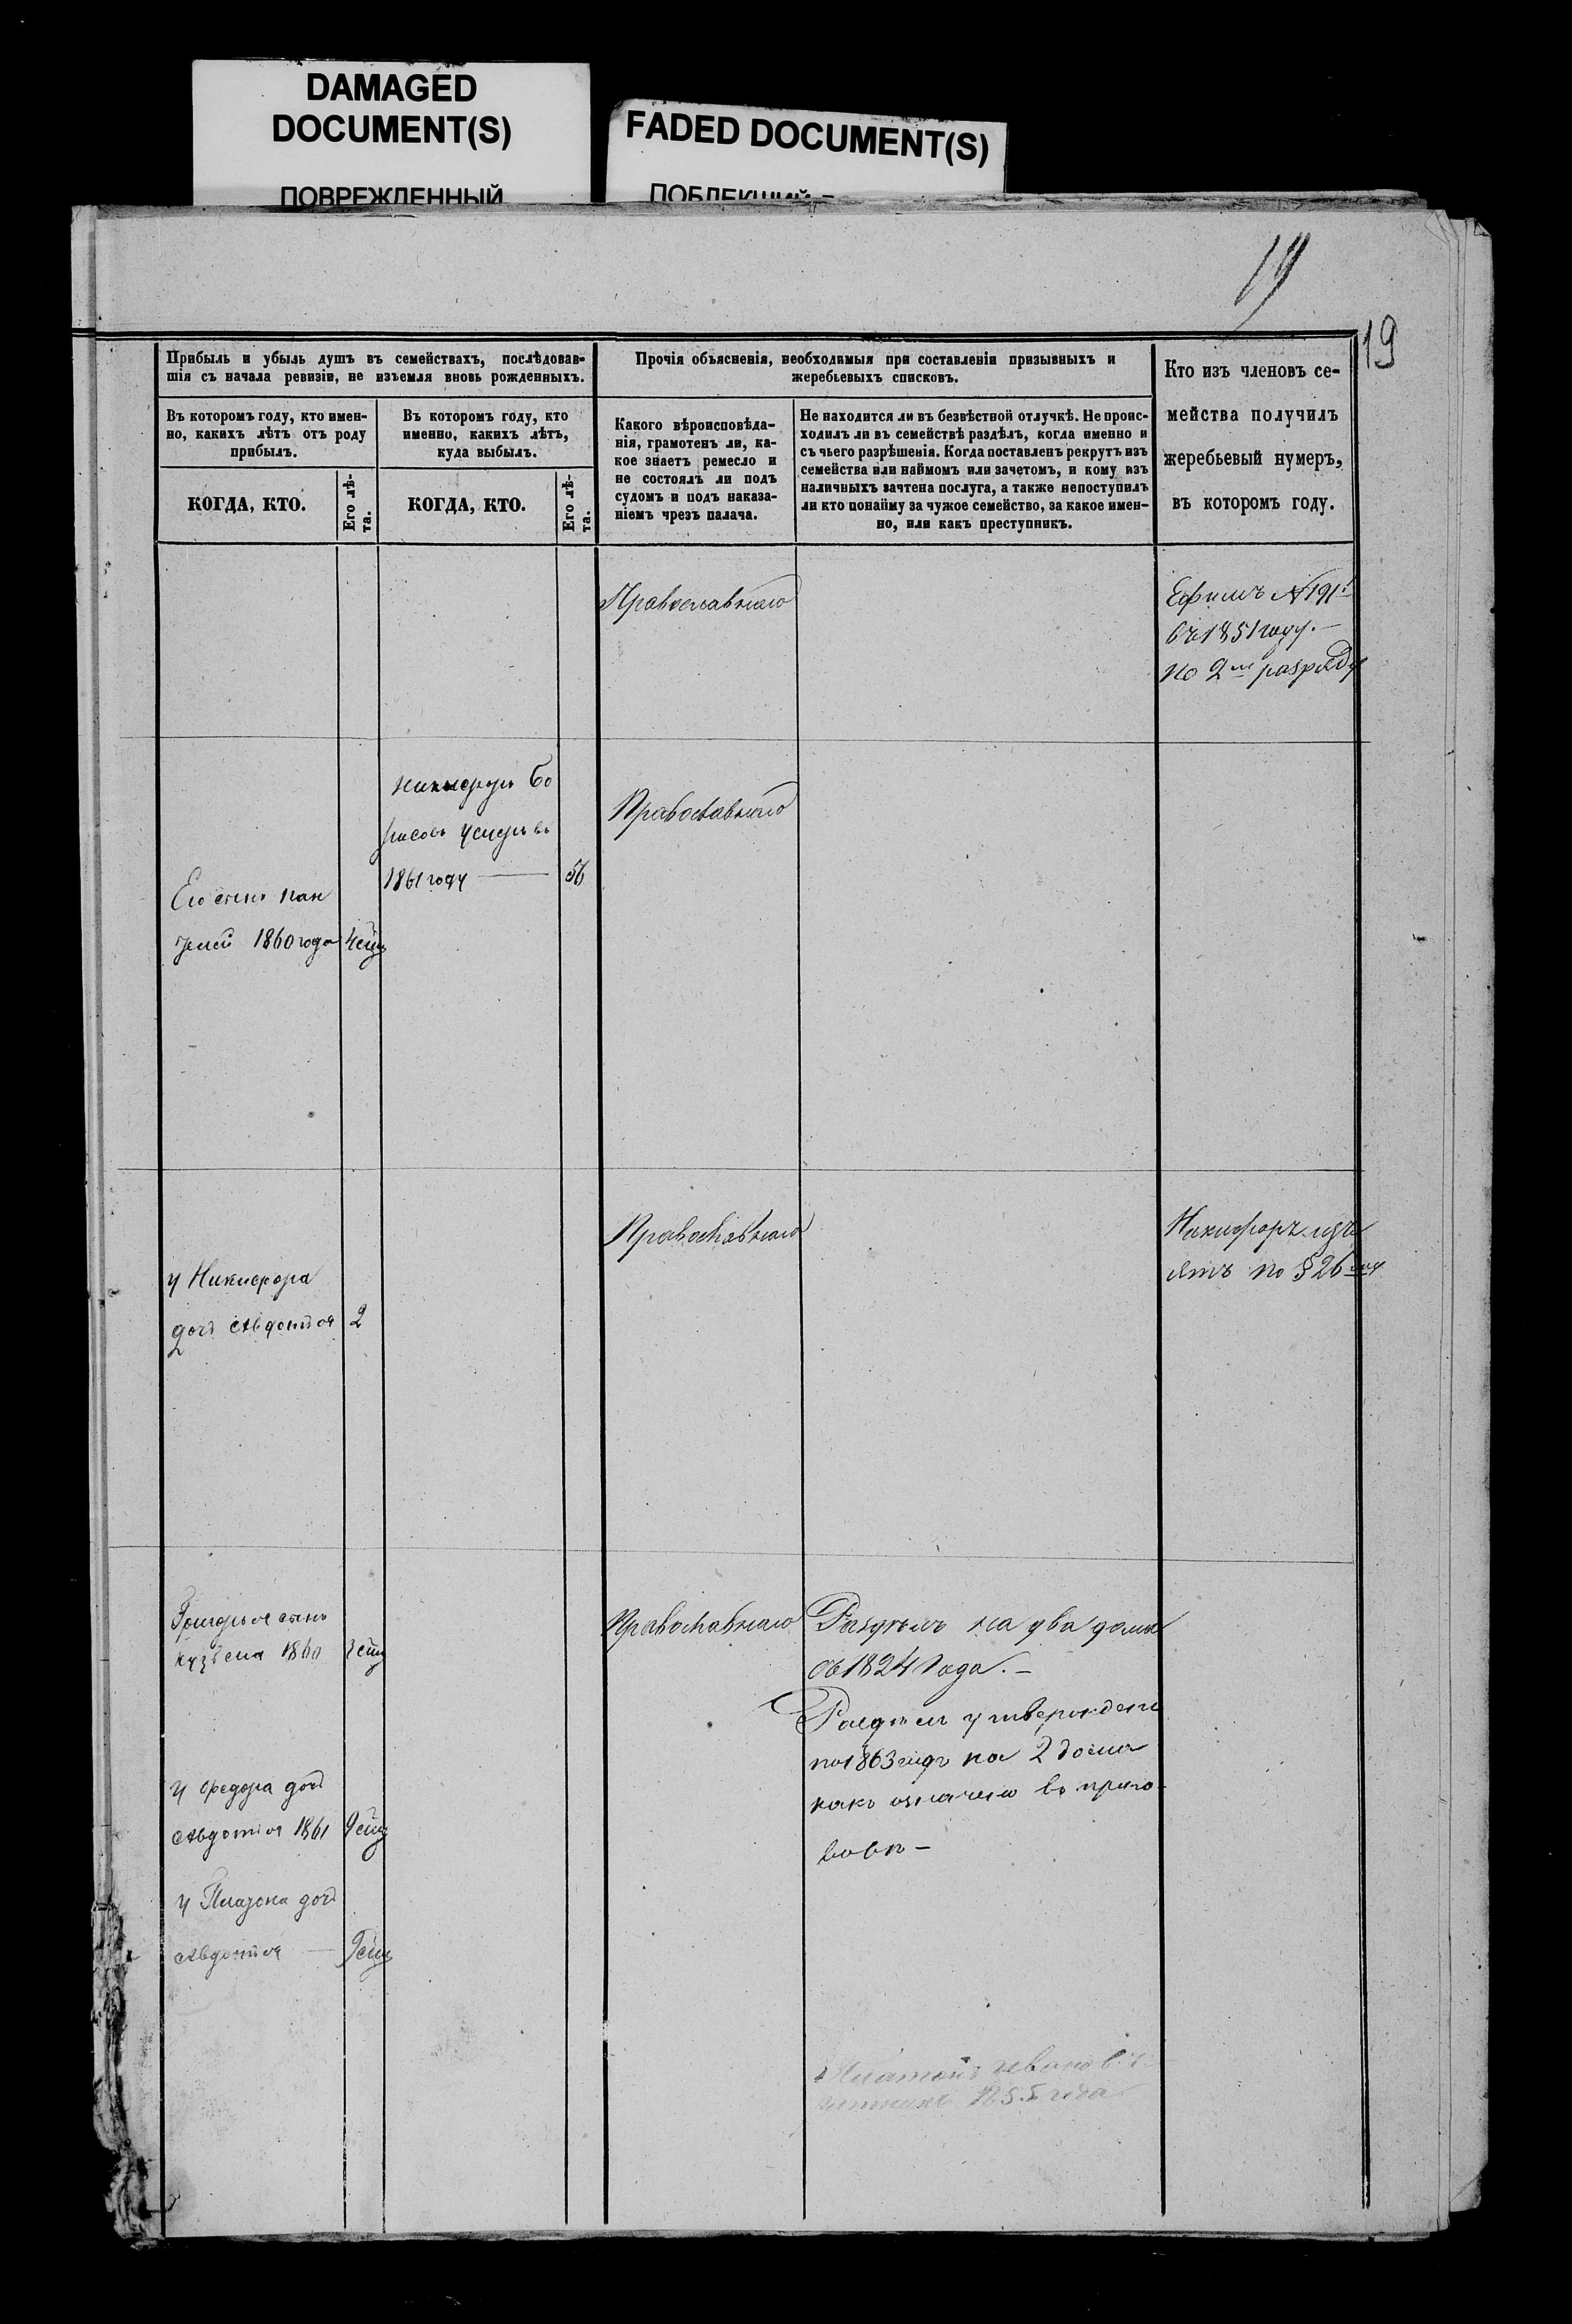 DAMAGED
DOCUMENT(S)
ПОВРЕЖДЕННЫЙ
FADED DOCUMENT(S)
ПОБЛЕКШИЙ
19
19
Прибыль и убыль душъ въ семействахъ, послѣдовав-
шія съ начала ревизіи, не изъемля вновь рожденныхъ.
Въ которомъ году, кто имен-
но, какихъ лѣтъ отъ роду
прибылъ.
Въ которомъ году, кто
именно, какихъ лѣтъ,
куда выбылъ.
КОГДА, КТО.
Его лѣ-
та.
КОГДА, КТО.
Его лѣ-
та.
Прочія объясненія, необходимыя при составленіи призывныхъ и
жеребьевыхъ списковъ.
Какого вѣроисповѣда-
нія, грамотенъ ли, ка-
кое знаетъ ремесло и
не состоялъ ли подъ
судомъ и подъ наказа-
ніемъ чрезъ палача.
Не находится ли въ безвѣстной отлучкѣ. Не проис-
ходилъ ли въ семействѣ раздѣлъ, когда именно и
съ чьего разрѣшенія. Когда поставленъ рекрутъ изъ
семейства или наймомъ или зачетомъ, и кому изъ
наличныхъ зачтена послуга, а также непоступилъ
ли кто понайму за чужое семейство, за какое имен-
но, или какъ преступникъ.
Кто изъ членовъ се-
мейства получилъ
жеребьевый нумеръ,
въ которомъ году.
Православнаго
Ефимъ №191й
въ 1851 году.—
по 2му разряду
Никифоръ Бо
рисовъ умеръ въ
1861 году — 56
Православнаго
Его сынъ Пан
телей 1860 года
Православнаго
Никифоръ изъ
ятъ по §26му
у Никифора
дочь Авдотья 2
Григорья сынъ
Кузьма 1860
Православнаго
Раздѣлъ на два дома
съ 1824 года.—
Раздѣлъ утвержденъ
по 1863 году на 2 дома
какъ означено въ приго-
ворѣ —
у Федора дочь
Авдотья 1861
у Платона дочь
Авдотья —
Платонъ Иванов
1855 года